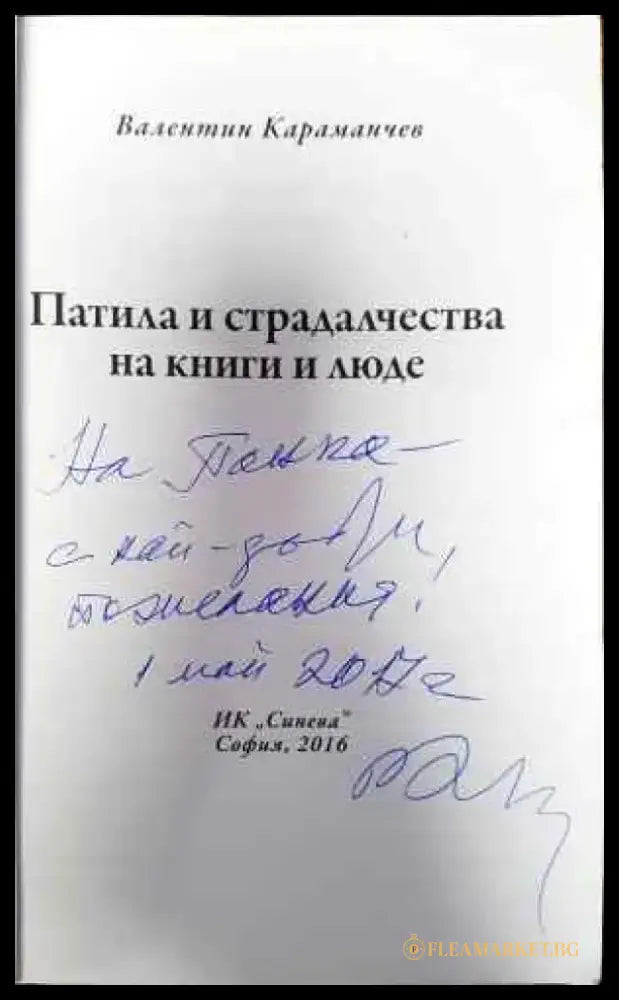 Валентин Караманчев
Патила и страдалчества
на книги и люде
На Панка –
с най-добри
пожелания!
1 май 2017 г
ИК „Синева"
София, 2016
FLEAMARKET.BG